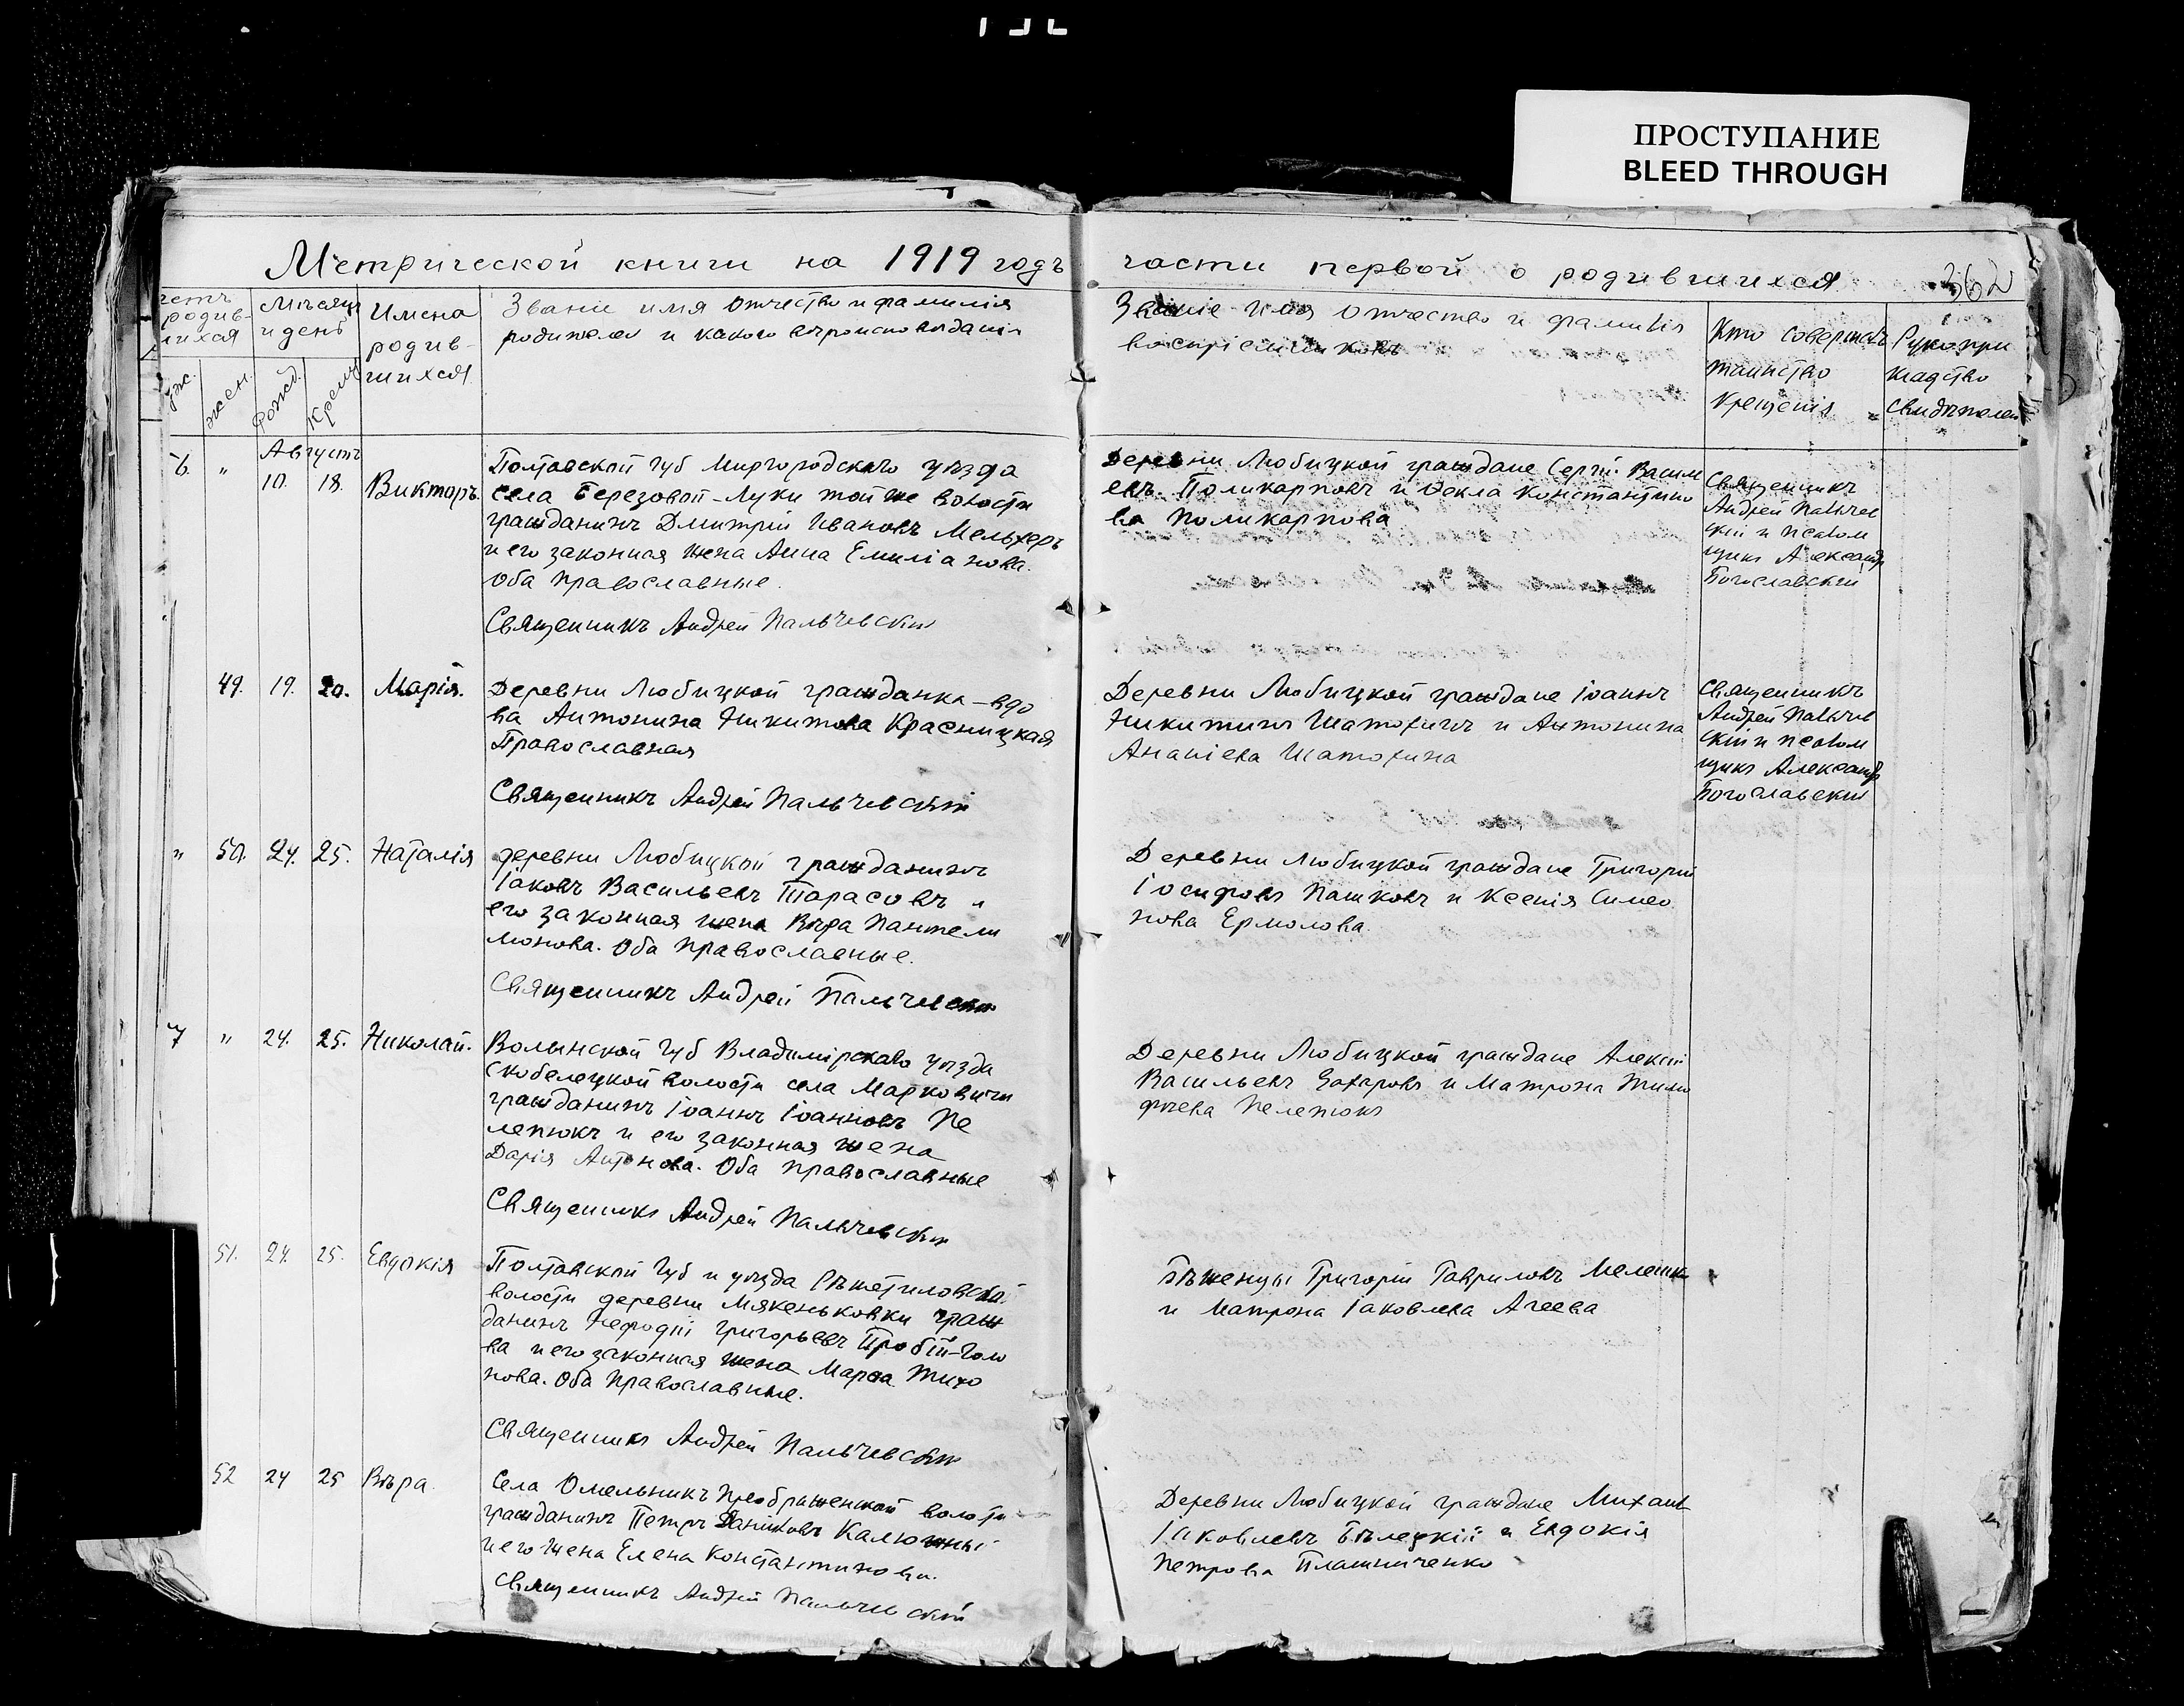 ПРОСТУПАНИЕ
BLEED THROUGH
Метрической книги на 1919 годъ
части первой о родившихся
362
четъ
родив-
шихся
Мѣсяцъ
и день
Имена
родив-
шихся
Званіе имя отчество и фамилія
родителей и какого вѣроисповѣданія
Званіе имя отчество и фамилія
воспріемниковъ
Кто совершалъ
таинство
крещенія
Рукопри
кладство
свидѣтелей
жен.
рожд.
крещ.
Августъ
6. " 10. 18. Викторъ.
Полтавской губ Миргородскаго уѣзда
села Березовой-Луки той же волости
гражданинъ Дмитрій Ивановъ Мельхеръ
и его законная жена Анна Емиліанова.
Оба православные.
Священникъ Андрей Пальчевскій
Деревни Любицкой граждане Сергій Васил
евъ Поликарповъ и Ѳекла Константино
ва Поликарпова
Священникъ
Андрей Пальчев
скій и псалом
щикъ Александръ
Богославскій
49. 19. 20. Марія.
Деревни Любицкой гражданка-вдо
ва Антонина Никитова Красницкая
Православная
Священникъ Андрей Пальчевскій
Деревни Любицкой граждане Іоаннъ
Никитинъ Шатохинъ и Антонина
Ананіева Шатохина
Священникъ
Андрей Пальчев
скій и псалом
щикъ Александръ
Богославскій
" 50. 24. 25. Наталія
деревни Любицкой гражданинъ
Іаковъ Васильевъ Тарасовъ и
его законная жена Вѣра Пантели
монова. Оба православные.
Священникъ Андрей Пальчевскій
Деревни Любицкой граждане Григорій
Іосифовъ Пашковъ и Ксенія Симео
нова Ермолова.
7 " 24. 25. Николай.
Волынской губ Владимірскаво уѣзда
Скобелецкой волости села Марковичи
гражданинъ Іоаннъ Іоанновъ Пе
лепюкъ и его законная жена
Дарія Антонова. Оба православные
Священникъ Андрей Пальчевскій
Деревни Любицкой граждане Алексій
Васильевъ Захаровъ и Матрона Тимо
фѣева Пелепюкъ
51. 24. 25. Евдокія
Полтавской губ и уѣзда Рѣшетиловской
волости деревни Мякеньковки граж
данинъ Мефодій Григорьевъ Пробій-Голо
ва и его законная жена Марѳа Тихо
нова. Оба православные.
Священникъ Андрей Пальчевскій
Бѣженцы Григорій Гавриловъ Мелешко
и Матрона Іаковлева Агеева
52 24 25 Вѣра.
Села Омельникъ Преображенской волости
гражданинъ Петръ Даніиловъ Калюжный
и его жена Елена Константинова.
Священникъ Андрей Пальчевскій
Деревни Любицкой граждане Михаил
Іаковлевъ Бѣлецкій и Евдокія
Петрова Плашниченко